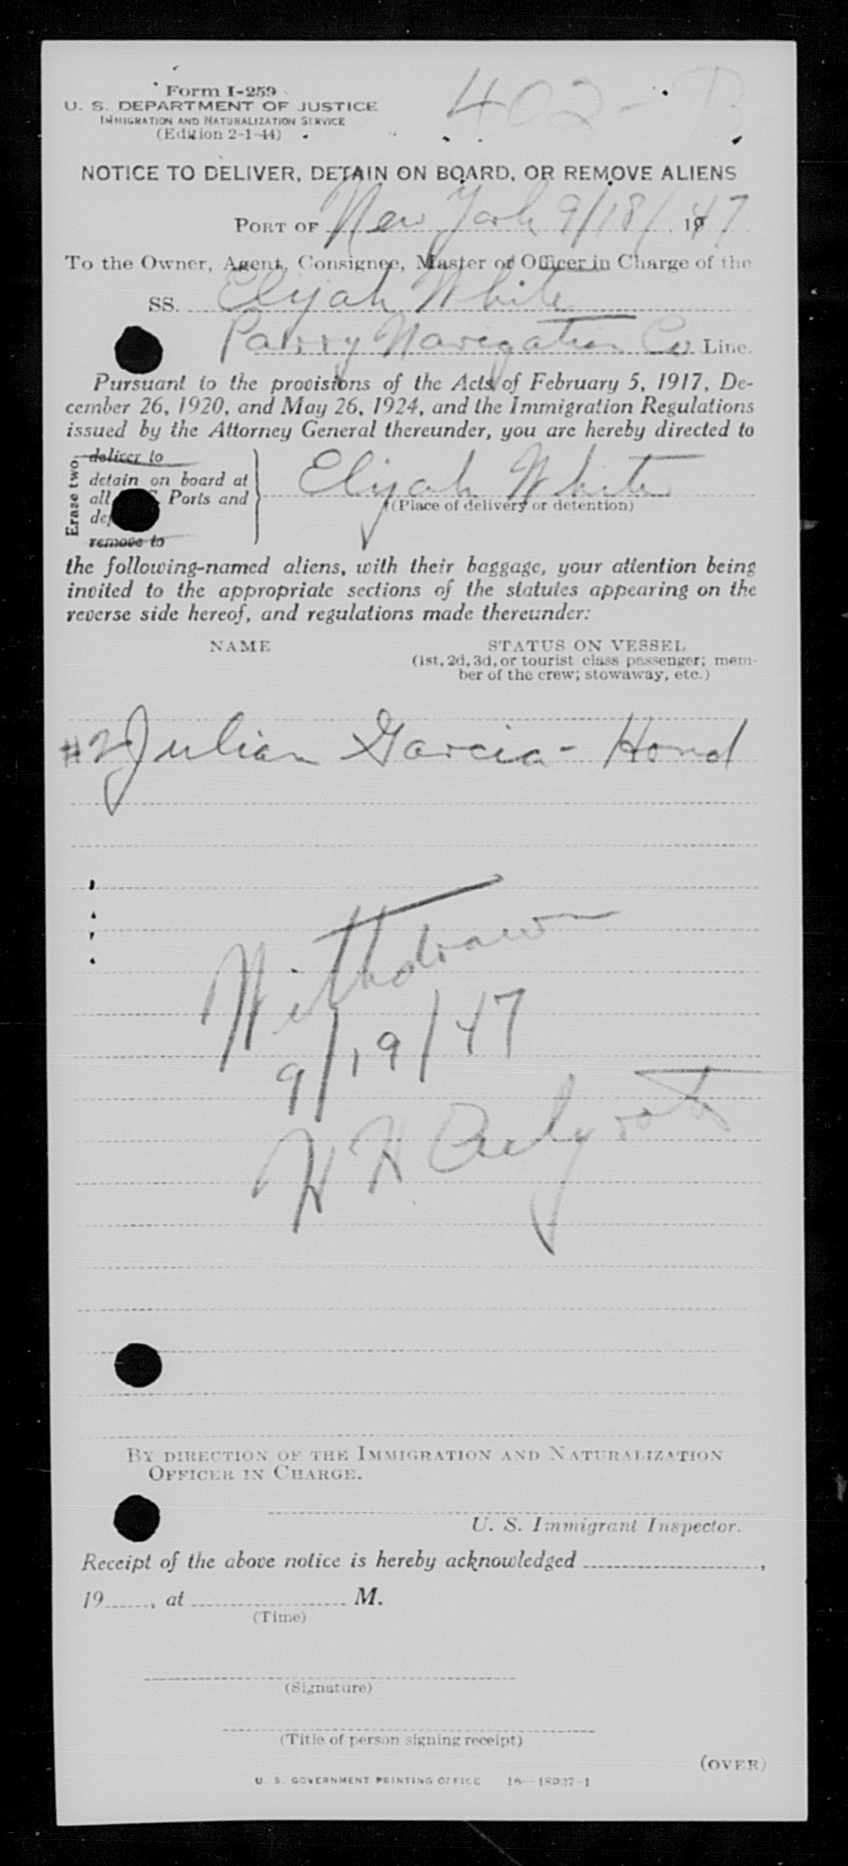 Form I-259
402-B
U. S. DEPARTMENT OF JUSTICE
IMMIGRATION AND NATURALIZATION SERVICE
(Edition 2-1-44)
NOTICE TO DELIVER, DETAIN ON BOARD, OR REMOVE ALIENS
PORT OF New York 9/18/, 1947
To the Owner, Agent, Consignee, Master or Officer in Charge of the
SS. Elijah White
Parry Navigation Co Line.
Pursuant to the provisions of the Acts of February 5, 1917, De-
cember 26, 1920, and May 26, 1924, and the Immigration Regulations
issued by the Attorney General thereunder, you are hereby directed to
Erase two
deliver to
detain on board at
all Ports and
remove to
Elijah White
(Place of delivery or detention)
the following-named aliens, with their baggage, your attention being
invited to the appropriate sections of the statutes appearing on the
reverse side hereof, and regulations made thereunder:
NAME STATUS ON VESSEL
(1st, 2d, 3d, or tourist class passenger; mem-
ber of the crew; stowaway, etc.)
#2 Julian Garcia - Hond
Withdrawn
9/19/47
H H
BY DIRECTION OF THE IMMIGRATION AND NATURALIZATION
OFFICER IN CHARGE.
U. S. Immigrant Inspector.
Receipt of the above notice is hereby acknowledged ,
19 , at M.
(Time)
(Signature)
(Title of person signing receipt)
(OVER)
U. S. GOVERNMENT PRINTING OFFICE 16-18937-1